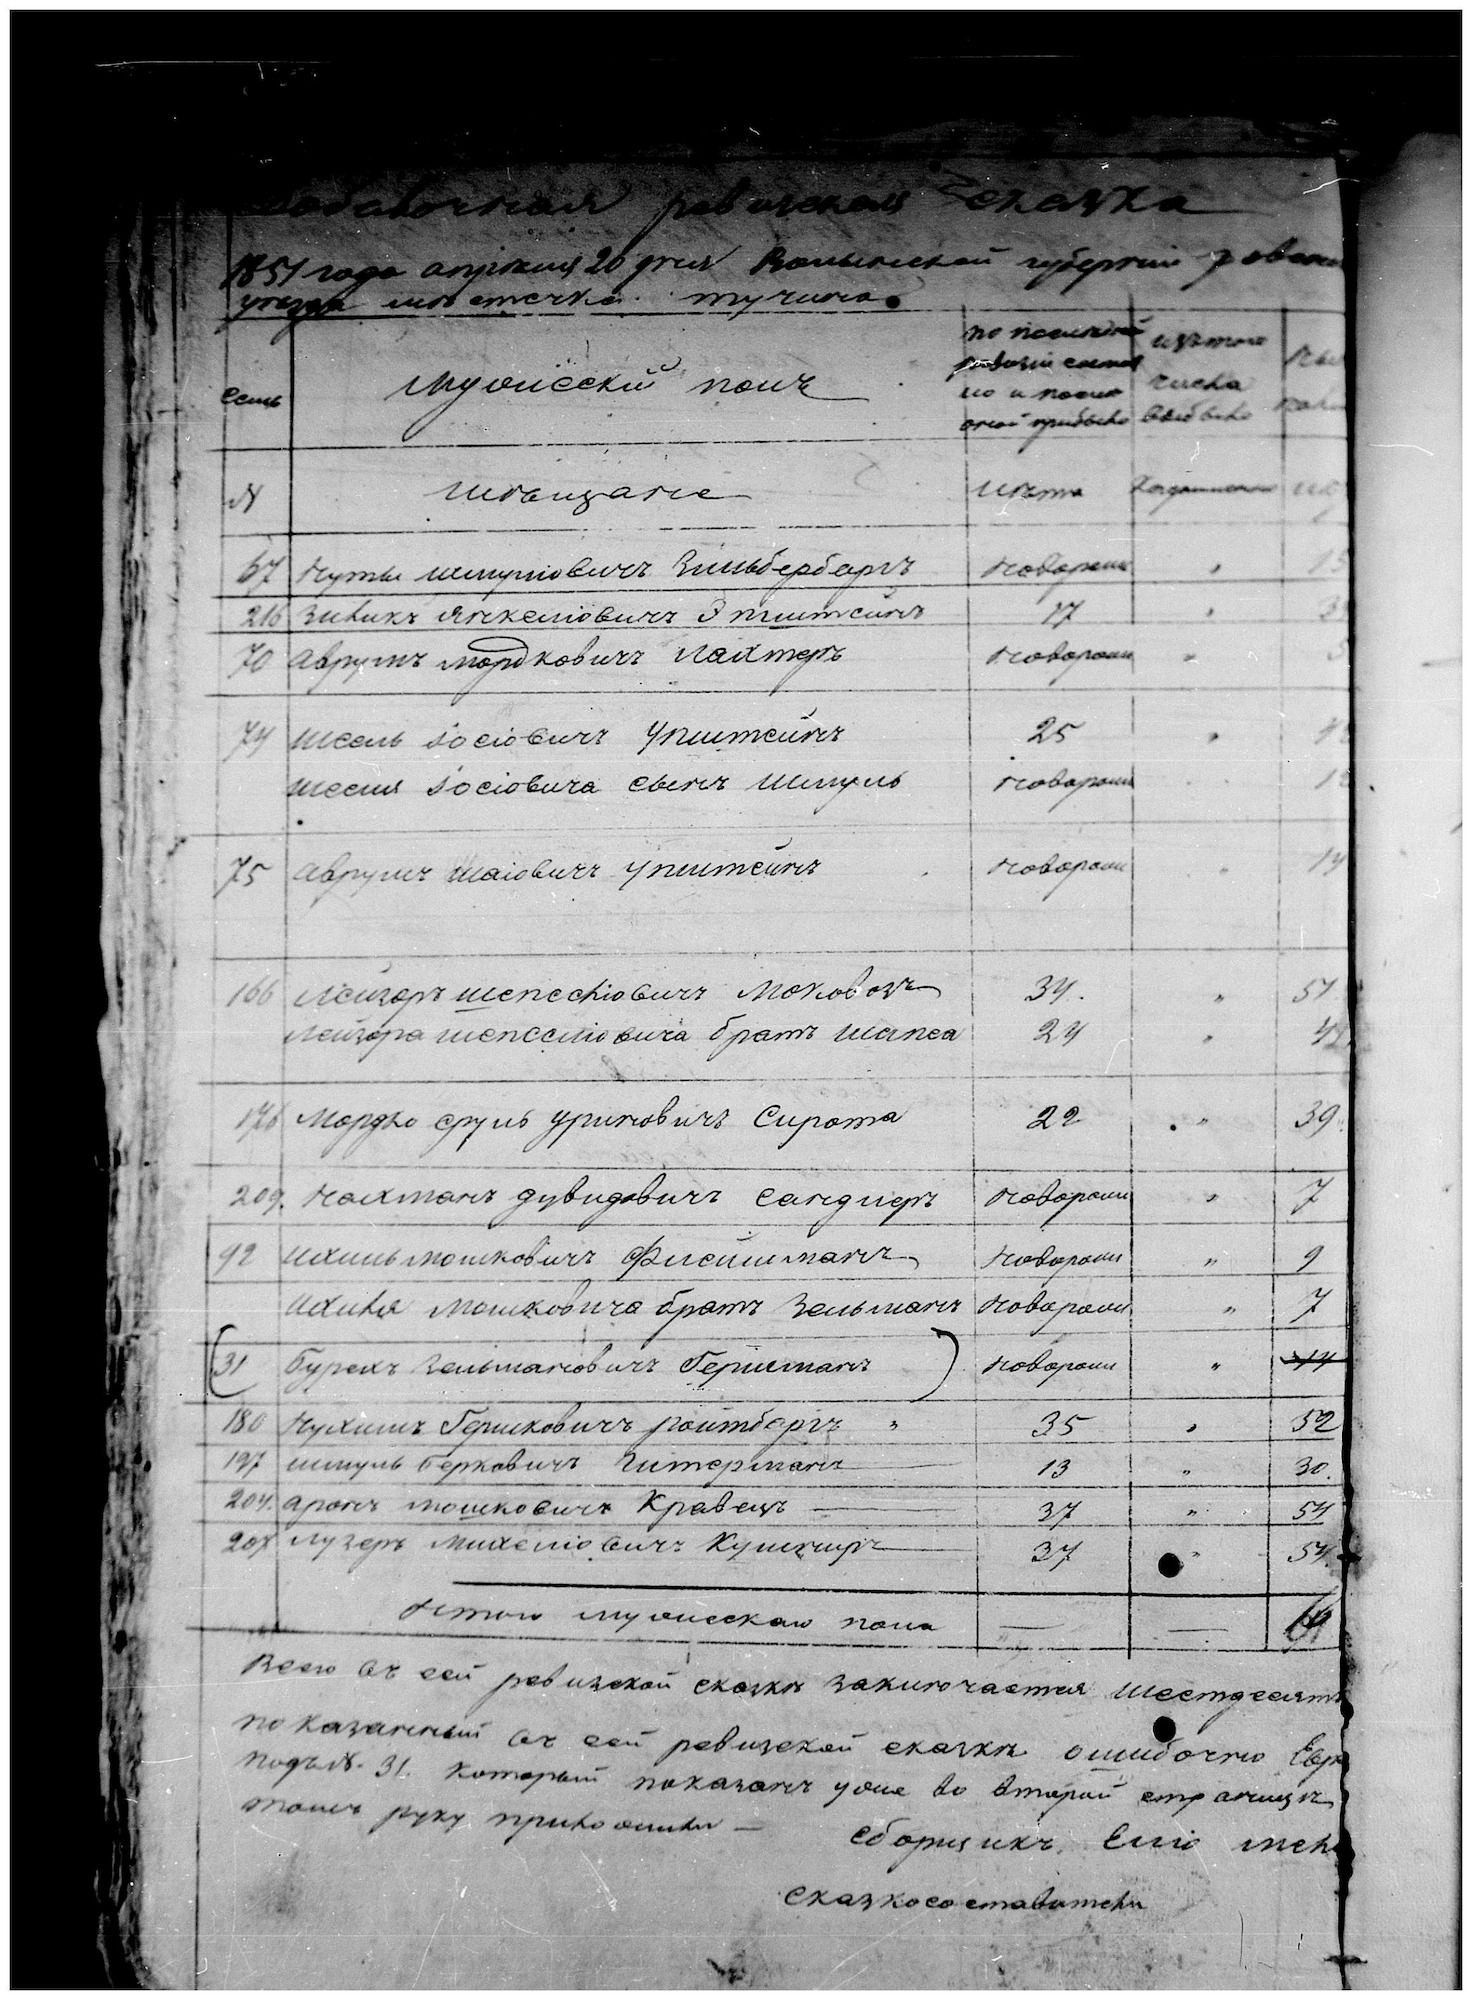 Добавочная ревизская сказка
1851 года апреля 20 дня Волынской губернии Ровенс
уезда местечка Тучина.
Семь
Мужеский полъ
по последней
ревизии состоя
ло и после
оной прибыло
изъ того
числа
выбыло
ны
нали
N
Мещане
лета
Когда именно
67 Нуты Шмулиовичъ Зильбербергъ новорожн "
216 Зивикъ Янкелиовичъ Эпштейнъ 17 "
70 Аврумъ Мордковичъ Лахтеръ новорожн "
74 Шселъ Iосiовичъ Упштейнъ 25 "
Шселя Iосiовича сынъ Шмуль новорожн
75 Аврумъ Шаiовичъ Упштейнъ новорожн " 14
166 Лейзоръ Шепселiовичъ Моковозъ 34. " 51
Лейзора Шепселiовича братъ Шапса 24 "
176 Мордко Сруль Уриновичъ Сирота 22 " 39
209. Нахманъ Дувидовичъ Сандлеръ новорожн " 7
92 Ихиль Мошковичъ Флейшманъ новорожн " 9
Ихиля Мошковича братъ Зельманъ новорожн " 7
(31 Бурехъ Зельмановичъ Гершманъ) новорожн " 14
180 Нухимъ Гершковичъ Ройтбергъ " 35 " 52
197 Шмуль Берковичъ Гитерманъ 13 " 30.
204. Аронъ Мошковичъ Кравецъ 37 " 54
207 Лузеръ Михелiовичъ Кушниръ 37 " 54.
Итого мужескаго пола — —
Всего въ сей ревизской сказке заключается шестдесятъ
показанный въ сей ревизской сказке ошибочно Евр
подъ N. 31. который показанъ уже во второй странице
томъ руку приложили —
Сборщикъ Елiо
сказкосоставители